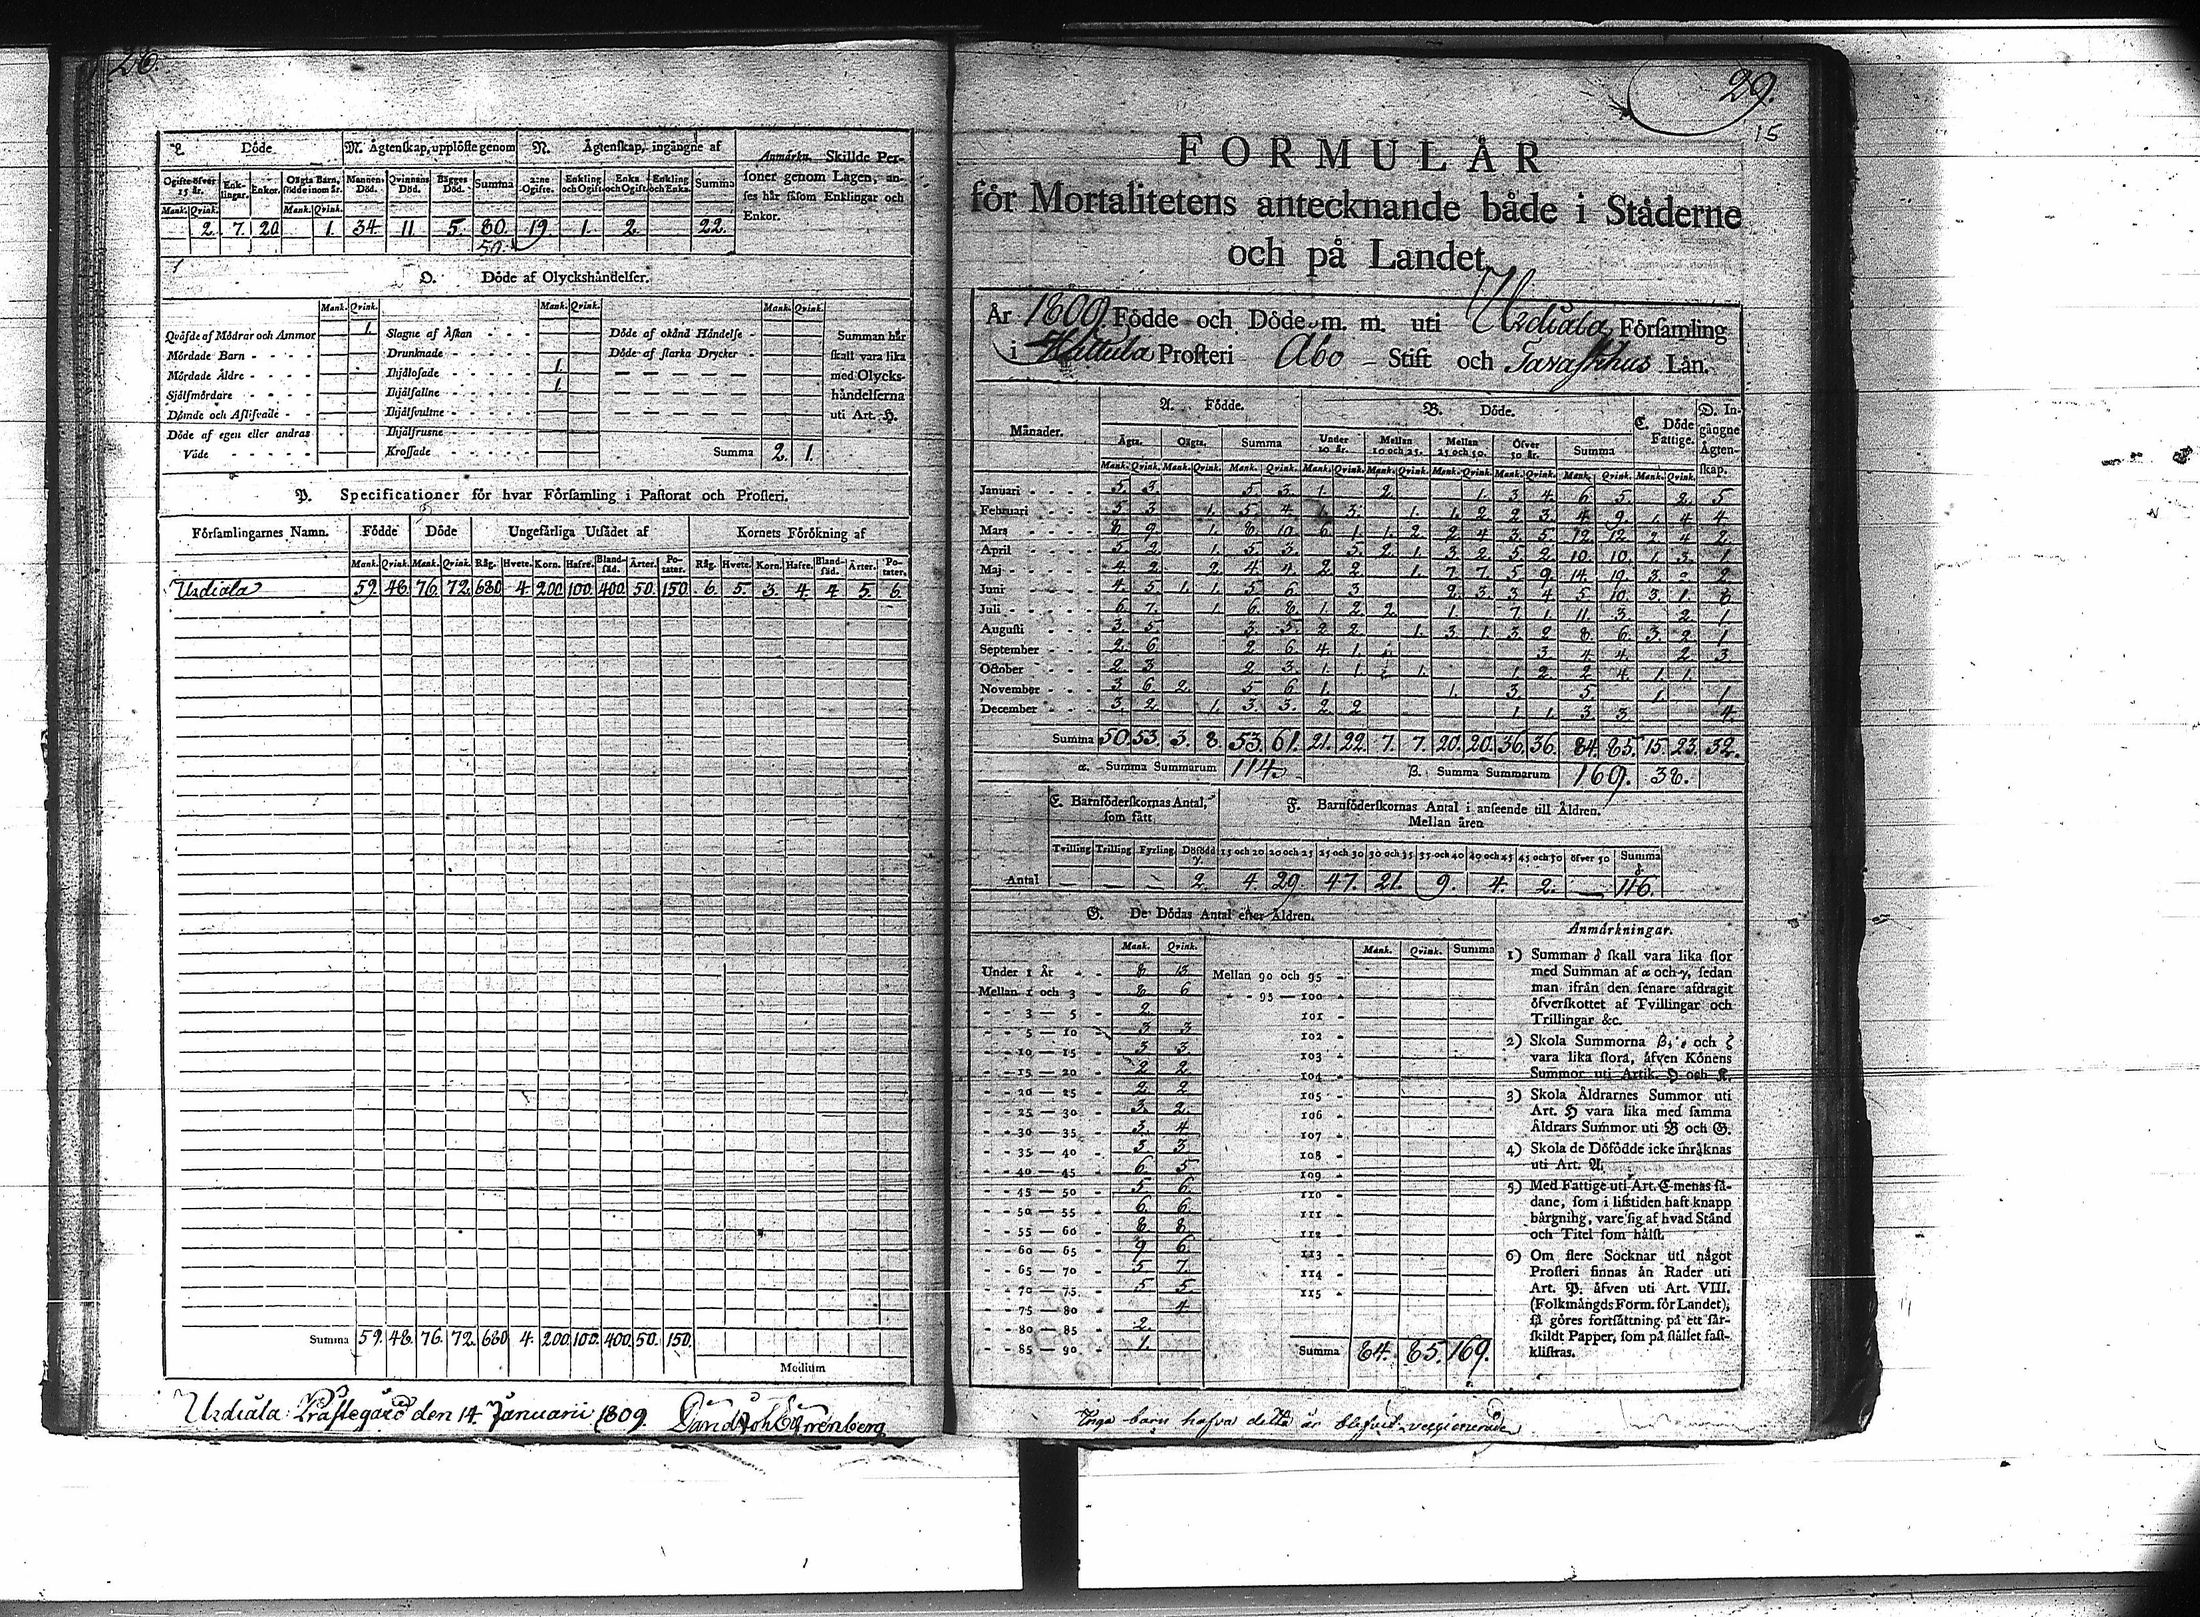 26.
L Döde
M. Ägtenskap, upplöste genom
N. Ägtenskap, ingångne af
Anmärkn. Skillde Personer genom Lagen, anses här såsom Enklingar och Enkor.
Ogifte öfver 15 år. Enklingar. Enkor. Oägta Barn, födde inom år. Mannens Död. Qvinnans Död. Bägges Död. Summa 2:ne Ogifte. Enkling och Ogift Enka och Ogift Enkling och Enka. Summa
Mank. Qvink. Mank. Qvink.
2. 7. 20 1. 34 11 5. 80. 19. 1. 2. 22.
50.
O. Döde af Olyckshändelser.
Mank. Qvink. Mank. Qvink. Mank. Qvink.
Qväfde af Mödrar och Ammor 1. Slagne af Åskan Döde af okänd Händelse
Mördade Barn Drunknade Döde af starka Drycker
Mördade Äldre Ihjälfrosade 1.
Självmördare Ihjälfallne 1.
Dömde och Aflifvade
Döde af egen eller andras Våde Krossade Summa 2. 1.
Summan här skall vara lika med Olyckshändelserna uti Art. H.
P. Specificationer för hvar Församling i Pastorat och Prosteri.
Församlingarnes Namn. Födde Döde Ungefärliga Utsädet af Kornets Förökning af
Mank. Qvink. Mank. Qvink. Råg. Hvete. Korn. Hafre. Blandsäd. Ärter. Potater. Råg. Hvete. Korn. Hafre. Blandsäd. Ärter. Potater.
Urdiala 59. 48. 76. 72. 680 4. 200. 100. 400. 50. 150. 6. 5. 3. 4. 4 5. 6
Summa 59. 48. 76. 72. 680 4. 200. 100. 400. 50. 150.
Medium
Urdiala Prästegård den 14 Januarii 1809.
29.
15
FORMULÄR
för Mortalitetens antecknande både i Städerne
och på Landet.
År 1809. Födde och Döde m. m. uti Urdiala Församling
i Hattula Prosteri Åbo Stift och Tavasthus Län.
Månader. A. Födde. B. Döde. C. Döde Fattige. D. Ingångne Ägtenskap.
Ägta. Oägta. Summa Under 10 år. Mellan 10 och 25. Mellan 25 och 50. Öfver 50 år. Summa
Mank. Qvink. Mank. Qvink. Mank. Qvink. Mank. Qvink. Mank. Qvink. Mank. Qvink. Mank. Qvink. Mank. Qvink. Mank. Qvink.
Januari 5. 3. 5. 3. 1. 2. 1. 3 4. 6. 5. 2. 5
Februari 5 3 1. 5. 4. 1. 3. 1. 1. 2 2 3. 4. 9. 1. 4 4.
Mars 8 9. 1. 8. 10. 6. 1. 1. 2 2 4 3. 5. 12. 12 2 4 2
April 5 2 1. 5. 3. 5. 2 1. 3 2 5 2 10. 10. 1. 3. 1
Maj 4 2 2. 4 4. 2 2. 1. 7 7. 5 9. 14. 19. 3. 2
Juni 4. 5 1. 1. 5 6. 3 2. 3. 3 4 5. 10. 3. 1. 8
Juli 6 7. 1. 6. 8. 1. 2 2. 1. 7 1. 11. 3. 2 1.
Augusti 3. 5 3. 5. 2 2. 1. 3. 1. 3 2 8 6 3. 2 1
September 2 6 2 6. 4. 1. 3 4 4. 2 3.
October 2 3 2 3. 1. 1. 1. 1. 2 2 4. 1. 1.
November 3 6 2. 5 6 1. 1. 3. 5. 1. 1
December 3. 2 1. 3 3. 2 2 1. 1. 3. 3 4.
Summa 50. 53. 3. 8. 53. 61. 21. 22. 7. 7. 20. 20. 36. 36. 84. 85. 15. 23. 32.
α. Summa Summarum 114. β. Summa Summarum 169. 38.
E. Barnföderskornas Antal, som fått
F. Barnföderskornas Antal i anseende till Åldren.
Mellan åren
Tvilling Trilling Fyrling Döfödd γ. 15 och 20 20 och 25 25 och 30 30 och 35 35 och 40 40 och 45 45 och 50 öfver 50 Summa δ
Antal 2. 4. 29. 47. 21. 9. 4. 2. 116.
G. De Dödas Antal efter Åldren.
Mank. Qvink. Mank. Qvink. Summa
Under 1 År 8 13. Mellan 90 och 95
Mellan 1 och 3 8 6 95 — 100
3 — 5 2. 101
5 — 10 3 3 102
10 — 15 3 3. 103
15 — 20 2 2 104
20 — 25 2 2 105
25 — 30 3. 2. 106
30 — 35 3 4 107
35 — 40 3 3 108
40 — 45 6. 5 109
45 — 50 5 6. 110
50 — 55 6. 6. 111
55 — 60 8 8 112
60 — 65 9 6. 113
65 — 70 5 7. 114
70 — 75 5 5. 115
75 — 80 4
80 — 85 2.
85 — 90 1.
Summa 84. 85. 169.
Anmärkningar.
1) Summan δ skall vara lika stor
med Summan af α och γ, sedan
man ifrån den senare afdragit
öfverskottet af Tvillingar och
Trillingar &c.
2) Skola Summorna β, ε och ζ
vara lika stora, äfven Könens
Summor uti Artik. H och K.
3) Skola Åldrarnes Summor uti
Art. H vara lika med samma
Åldrars Summor uti B och G.
4) Skola de Döfödde icke inräknas
uti Art. A.
5) Med Fattige uti Art. C menas sådane,
som i lifstiden haft knapp
bärgning, vare sig af hvad Stånd
och Titel som hälst.
6) Om flere Socknar uti något
Prosteri finnas än Rader uti
Art. P. äfven uti Art. VIII.
(Folkmängds Form. för Landet),
så göres fortsättning på ett särskildt
Papper, som på stället fastklistras.
Inga barn hafva detta år blifvit